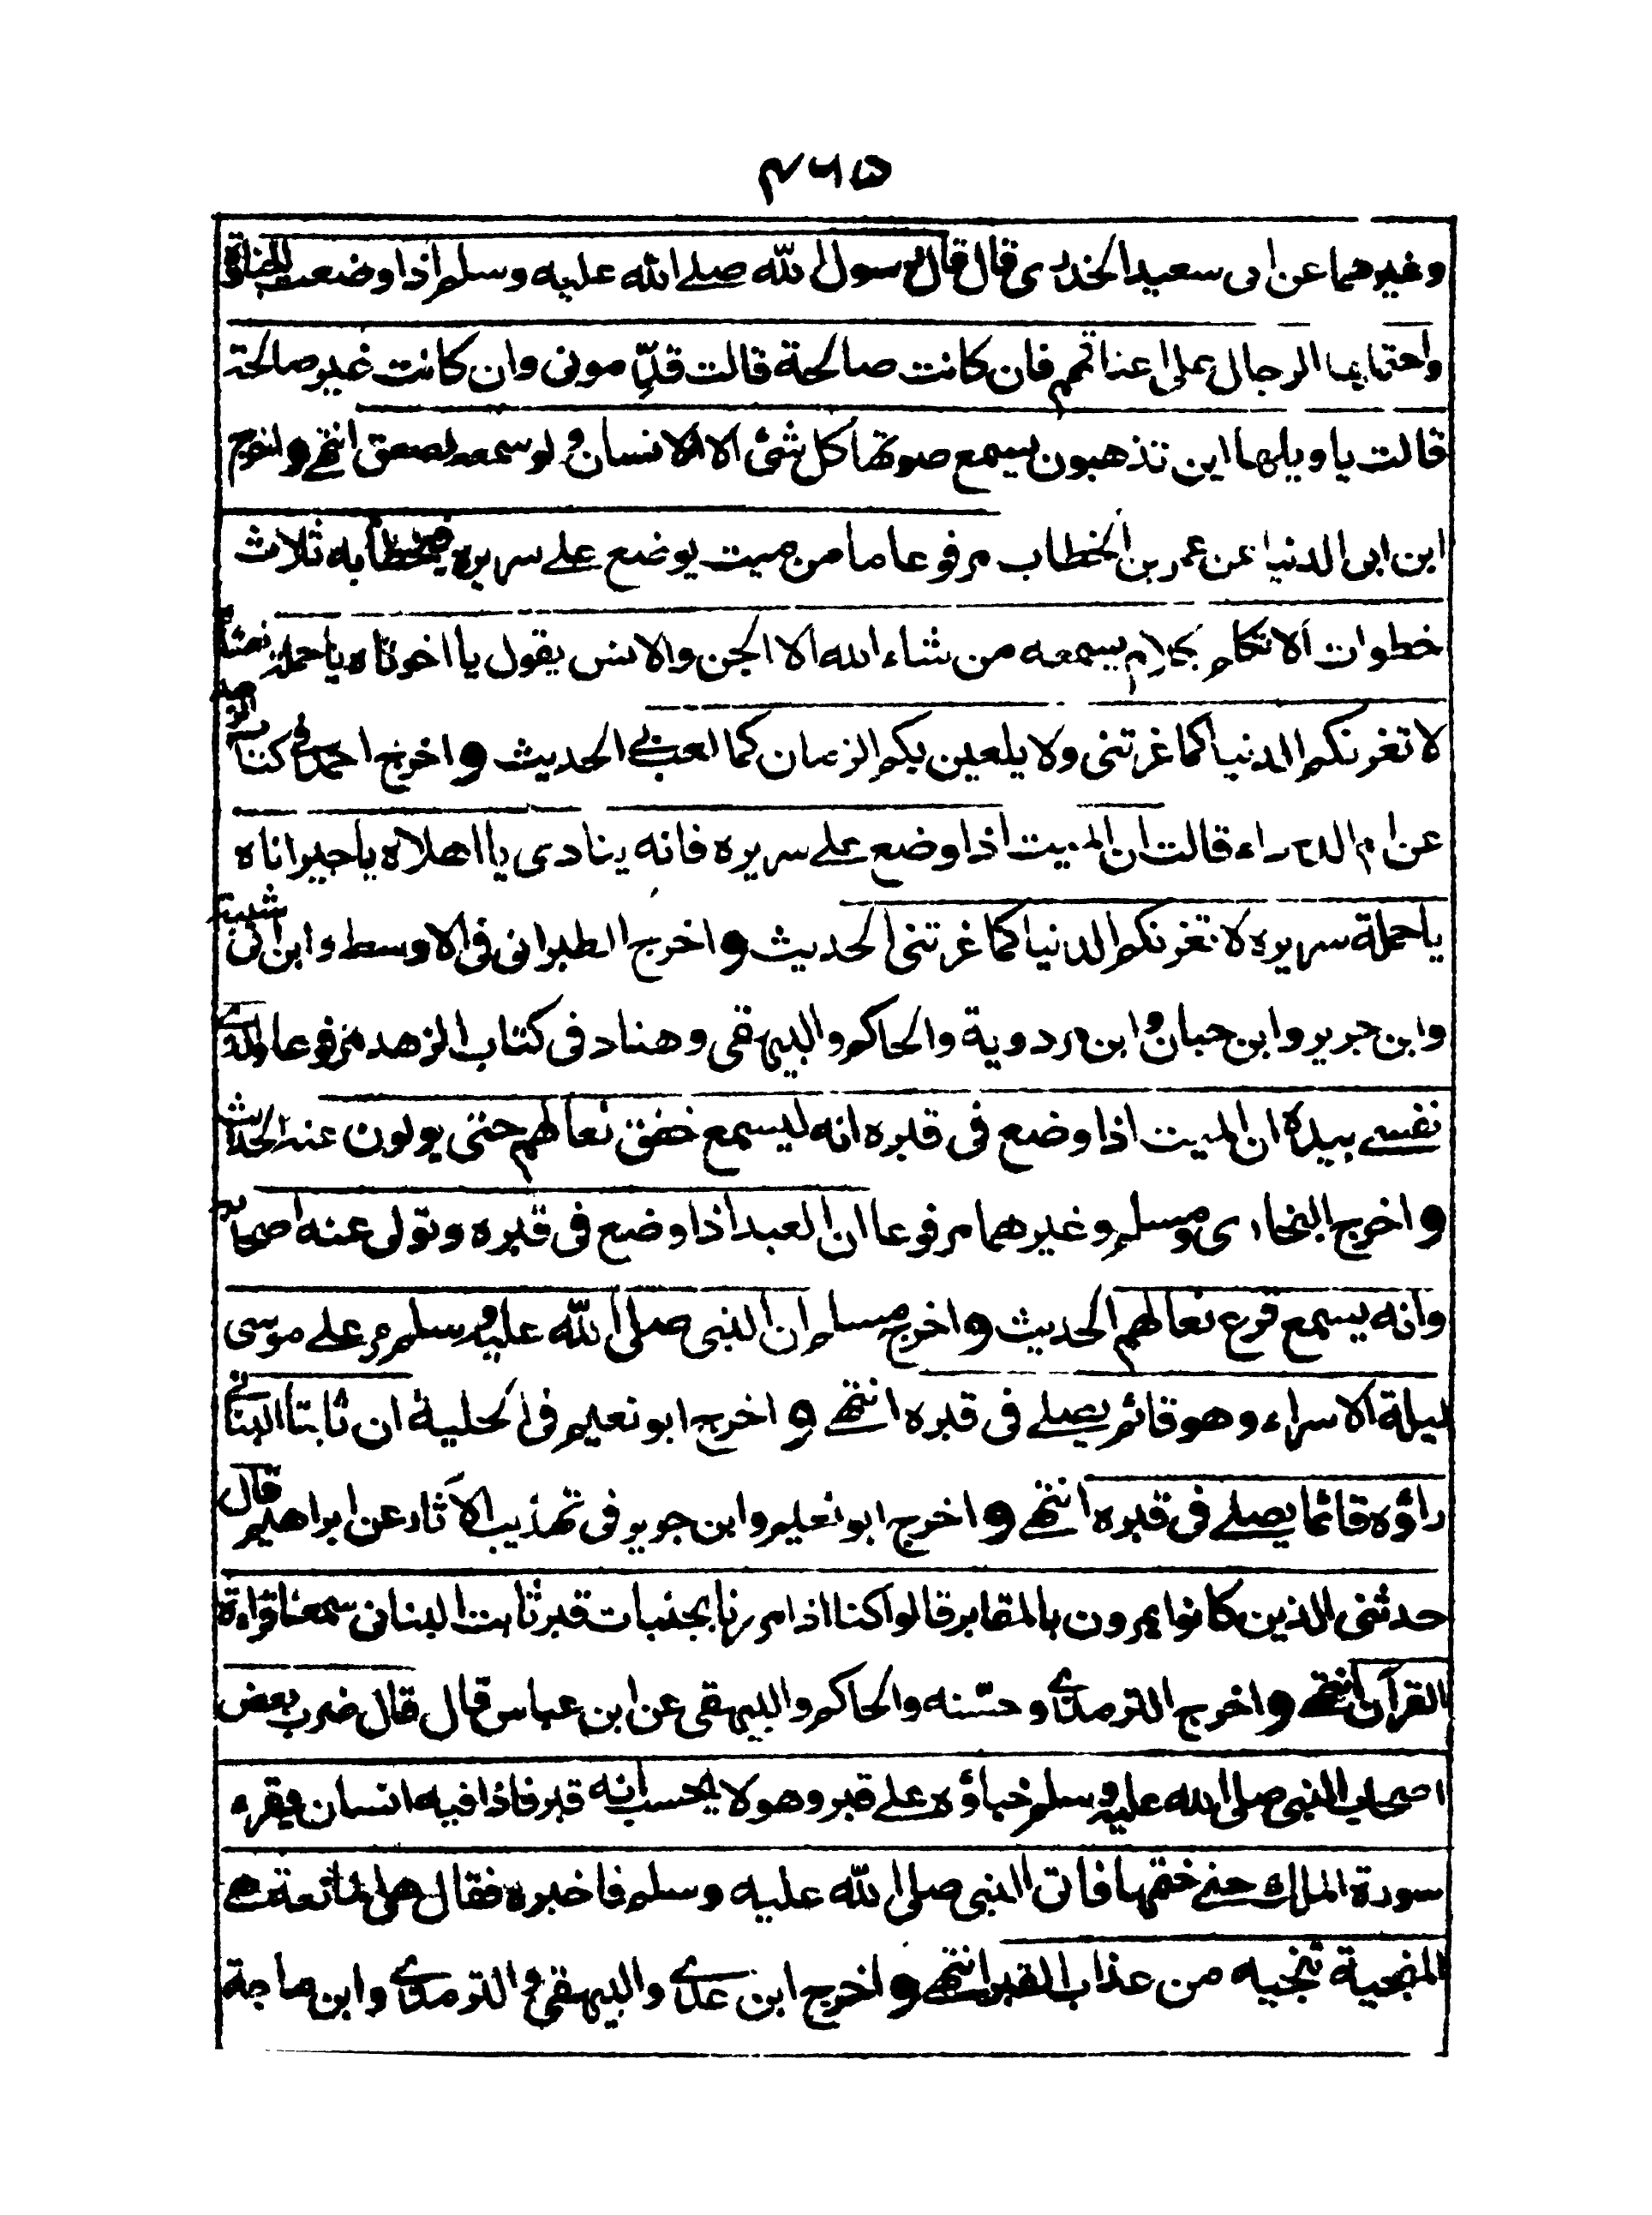 ٤٦٥
وغيرهما عن ابى سعيد الخدرى قال قال رسول الله صلے الله عليه وسلم اذا وضعت الجنازة
واحتملها الرجال على اعناقهم فان كانت صالحة قالت قدّمونى وان كانت غير صالحة
قالت يا ويلها اين تذهبون يسمع صوتها كل شئ الا الانسان ولو سمعه لصعق انتهے واخرج
ابن ابى الدنيا عن عمر بن الخطاب مرفوعا ما من ميت يوضع علے سريره فيخطا به ثلاث
خطوات الا تكلم بكلام يسمعه من شاء الله الا الجن والانس يقول يا اخوتاه يا حملة نعشاه
لا تغرنكم الدنيا كما غرتنى ولا يلعبن بكم الزمان كما لعب بى الحديث واخرج احمد فى كتاب الزهد
عن ام الدرداء قالت ان الميت اذا وضع علے سريره فانه ينادى يا اهلاه يا جيراناه
يا حملة سريره لا تغرنكم الدنيا كما غرتنى الحديث واخرج الطبرانى فى الاوسط وابن ابى شيبة
وابن جرير وابن حبان وابن مردوية والحاكم والبيهقى وهناد فى كتاب الزهد مرفوعا والذى
نفسے بيده ان الميت اذا وضع فى قبره انه ليسمع خفق نعالهم حتى يولون عنه الحديث
واخرج البخارى ومسلم وغيرهما مرفوعا ان العبد اذا وضع فى قبره وتولى عنه اصحابه
وانه يسمع قرع نعالهم الحديث واخرج مسلم ان النبى صلى الله عليه وسلم مر علے موسى
ليلة الاسراء وهو قائم يصلے فى قبره انتهے واخرج ابو نعيم فى الحلية ان ثابتا البنانى
راؤه قائما يصلے فى قبره انتهے واخرج ابو نعيم وابن جرير فى تهذيب الآثار عن ابراهيم قال
حدثنى الذين كانوا يمرون بالمقابر قالوا كنا اذا مررنا بجنبات قبر ثابت البنانى سمعنا قراءة
القرآن انتهے واخرج الترمذى وحسّنه والحاكم والبيهقى عن ابن عباس قال قال ضرب بعض
اصحاب النبى صلى الله عليه وسلم خباؤه علے قبر وهو لا يحسب انه قبر فاذا فيه انسان يقرء
سورة الملك حتے ختمها فاتى النبى صلى الله عليه وسلم فاخبره فقال هى المانعة هے
المنجية تنجيه من عذاب القبر انتهے واخرج ابن عدى والبيهقى والترمذى وابن ماجة